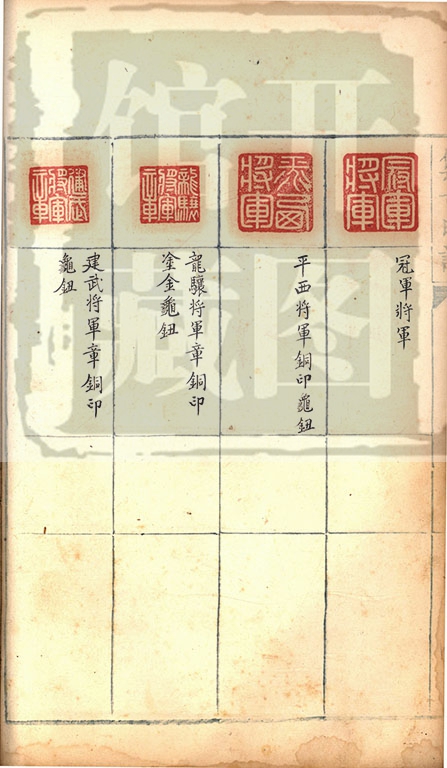 开图
馆藏
冠軍將軍
冠軍將軍
平西將軍
平西將軍銅印龜鈕
龍驤將軍章
龍驤將軍章銅印
塗金龜鈕
建武將軍章
建武將軍章銅印
龜鈕